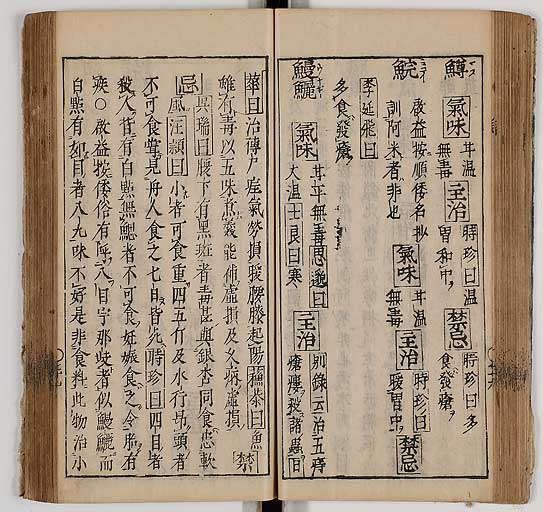 鱒 氣味 甘温無毒 主治 時珍曰温胃和中 禁忌 時珍曰多食發瘡
啟益按順倭名抄訓阿米者非也
鯇 氣味 甘温無毒 主治 時珍曰暖胃中 禁忌
李延飛曰多食發瘡
鰻鱺 氣味 甘平無毒思邈曰大温士良曰寒 主治 别錄云治五痔瘡瘻殺諸蟲
華曰治傳尸疰氣勞損暖腰膝起陽蘓恭曰魚
雖有毒以五味煮羹能補虚損及久病虚損 禁
忌 吴瑞曰腹下有黒斑者毒甚與銀杏同食患軟
風汪頴曰小者可食重四五斤及水行昂頭者
不可食嘗見舟人食之七日皆死時珍曰四目者
殺人背有白點無鰓者不可食妊娠食之令胎有
疾○啟益按倭俗有
者似鰻鱺而
自點有如目者八九味不好是非食料此物治小